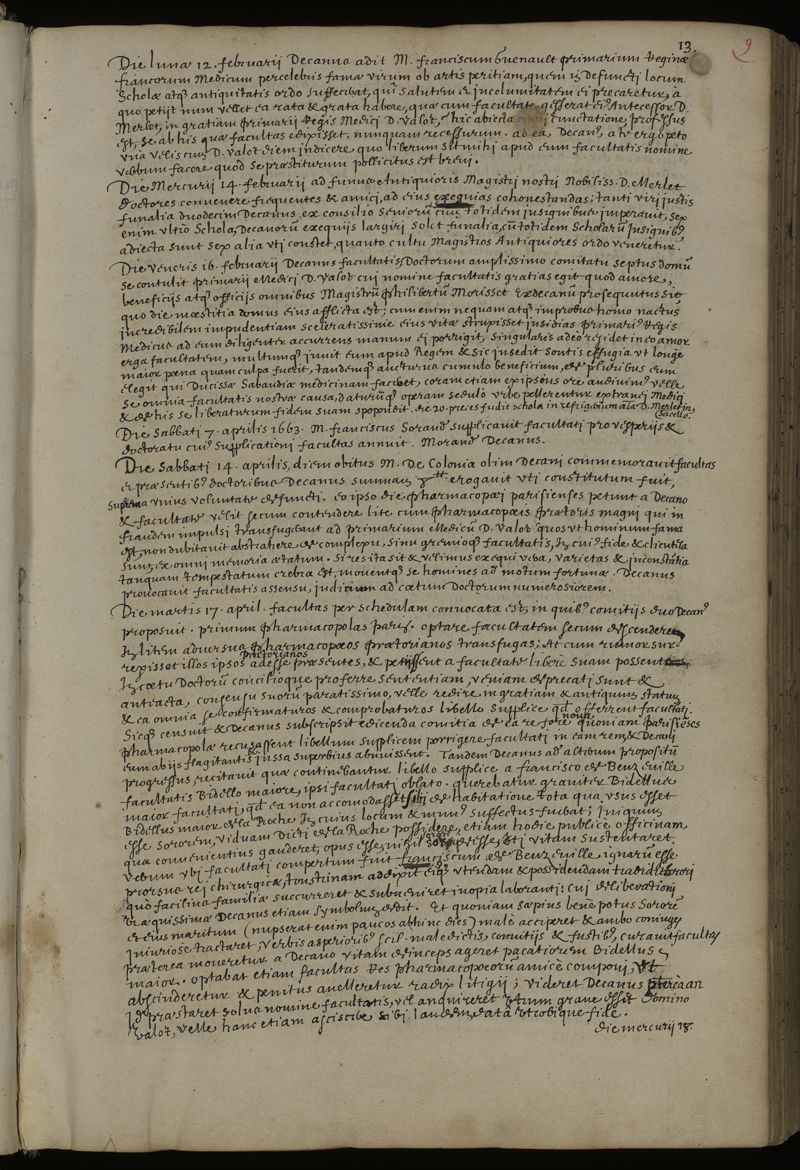 13. 9
Die lunæ 12. februarij Decanus adit M. franciscum Guenault primarium Reginæ
francorum Medicum percelebris famæ virum ob artis peritiam, quem in defuncti locum
Scholæ atq antiquitatis ordo suffecerat, qui salutem et incolumitatem ei precaretur, a
quo petijt num vellet ea rata & grata habere, quæ cum facultate gesserat ei Antecessor D.
Merlet, in gratiam primarij Regis Medici D. Valot, hic abiecta cunctatione, professus
est, se ab his quæ facultas edixisset, nunquam recessurum. ad ea, Decan, a te ergo peto
una velis cum D. Valot diem indicere quo liberum sit mihi apud eum facultatis nomine
verbum facere quod se præstiturum pollicitus est brevi.
Die Mercurij 14. februarij ad funus Antiquioris Magistri nostri Nobiliss. D. Merlet
doctores convenere frequentes & amici, ad eius exequias cohonestandas; tanti viri justis
funalia duodecim Decanus ex consilio Seniorũ cum totidem insignibus imperavit, sex
enim ultro Schola, Decanorũ exequijs largiri solet funalia, cũ totidem Scholarũ insignib
adiecta sunt sex alia uti constet, quanto cultu Magistros Antiquiores ordo veneretur.
Die veneris 16. februarij Decanus facultatis Doctorum amplissimo comitatu septus domũ
se contulit primarij Medici D. Valot cui nomine facultatis gratias egit quod amore,
beneficijs atq officijs omnibus Magistrũ philibertũ Morisset exdecanũ prosequutus sit
quo die mœstitia domus eius afflicta est; cum enim nequam atq improbus homo nactus
incredibilem impudentiam sceleratissime eius vitæ struxisset insidias primari Regis
Medicus ad eum diligenter accurrens manum ei porrigit, singularis adeo residet in eo amor
erga facultatem, multumq juvit eum apud Regem & sic insedit sontis effugia ut longe
maior pœna quam culpa fuerit, tandemq aucturus cumulo beneficium, de pluribus eum
elegit qui Ducissæ Sabaudiæ medicinam faceret, coram etiam ex ipsius ore audivim velle
se omnia facultatis nostræ causa, daturũq operam sedulo urbe pellerentur extranei Medici
& de his se liberaturum fidem suam spopondit. die 20. preces fudit schola in refrigerium aĩæ D. Merlet in
sacello.
Die Sabbati 7. aprilis 1663. M. franciscus Sorand supplicavit facultati pro vesperijs &
doctoratu cui supplicationi facultas annuit. Morand Decanus.
Die Sabbati 14. aprilis, diem obitus M. De Colonia olim Decani commemoravit facultas
et præsentib doctoribus Decanus summam erogavit uti constitutum fuit,
suprema unius voluntate defuncti. eo ipso die pharmacopœi parisienses petunt a Decano
& facultate velit secum contendere lite cum pharmacopœis prætoris magni qui in
fraudem impulsi transfugebant ad primarium Medicũ D. Valot quos ut hominum fama
est, non dubitavit abstrahere de complexu, sinu gremioq facultatis, in cui fide & clientela
sunt ex omni memoria ætatum. Si res ita sit & velimus exequi vera, varietas & inconstãtia
tanquam tempestatum crebra est, moventq se homines ad motum fortunæ. Decanus
provocavit facultatis assensu, judicium ad cœtum Doctorum numerosiorem.
Die martis 17. april. facultas per schedulam convocata est, in quib comitijs duo Decan
proposuit. primum pharmacopolas paris. optare facultatem secum descendere
in litem adversus pharmacopœos prætorianos transfugas; At cum rumor sur-
prætorianos
repsisset illos ipsos adesse præsentes, & petijssent a facultate liberè suam possent
in cœtu Doctorũ concilioque proferre sententiam, veniam deprecati sunt &
anteacta, consensu suorũ paratissimo, velle redire in gratiam & antiquum statum
& ea omnia se confirmaturos & comprobaturos libello supplice qd offerrent facultati.
Sicq censuit & Decanus subscripsit edicenda comitia de ea re fore nova quoniam parisiẽses
pharmacopolæ recusassent libellum supplicem porrigere facultati in eam rem, & Decani
eum ab ijs flagitantis jussa superbius abnuissent. Tandem Decanus ad alterum propositũ
progressus recitavit quæ continebantur libello supplice a francisco de Benzeville
facultatis Bidello maiore, ipsi facultati oblato. querebatur graviter Bidellus
maior facultati, qd ea non accomodasset sibi de habitatione tota qua usus esset
Bidellus maior de la Roche in cuius locum & mun suffectus fuerat; iniquum
esse sororem, viduam Dicti de la Roche possidere, etiam hodie publicè officinam
qua convenientius gauderet, opus esse, nisi ut vitam sustentaret.
Verum ubi facultati compertum fuit franciscum de Benzeville ignarũ esse
prorsus rei chirurgicæ, tonstrinam addixit eiq utendam & possidendam tradidit sorori
quo facilius familiæ succurreret & subveniret inopia laboranti: cui deliberationi
æquissimæ Decanus etiam symbolum dedit. Et quoniam sæpius bene potus sororẽ
& eius maritum (nupserat enim paucos abhinc dies) malè acciperet & ambo coniuges
injuriose tractaret, verbis asperiorib scil. maledictis, convitijs & fustib, curavit facultas
præterea moneretur a Decano vitam deinceps ageret pacatiorem Bidellus
maior. optabat etiam facultas res pharmacopœorũ amicè componi, ut
abscinderetur & penitus avelleretur radix litigij; videret Decanus
id præstaret solus nomine facultatis, vel anquireret utrum grave esset Domino
Valot, velle hanc etiam asciscere sibi laudem, data utrobique fide.
die mercurij 18.